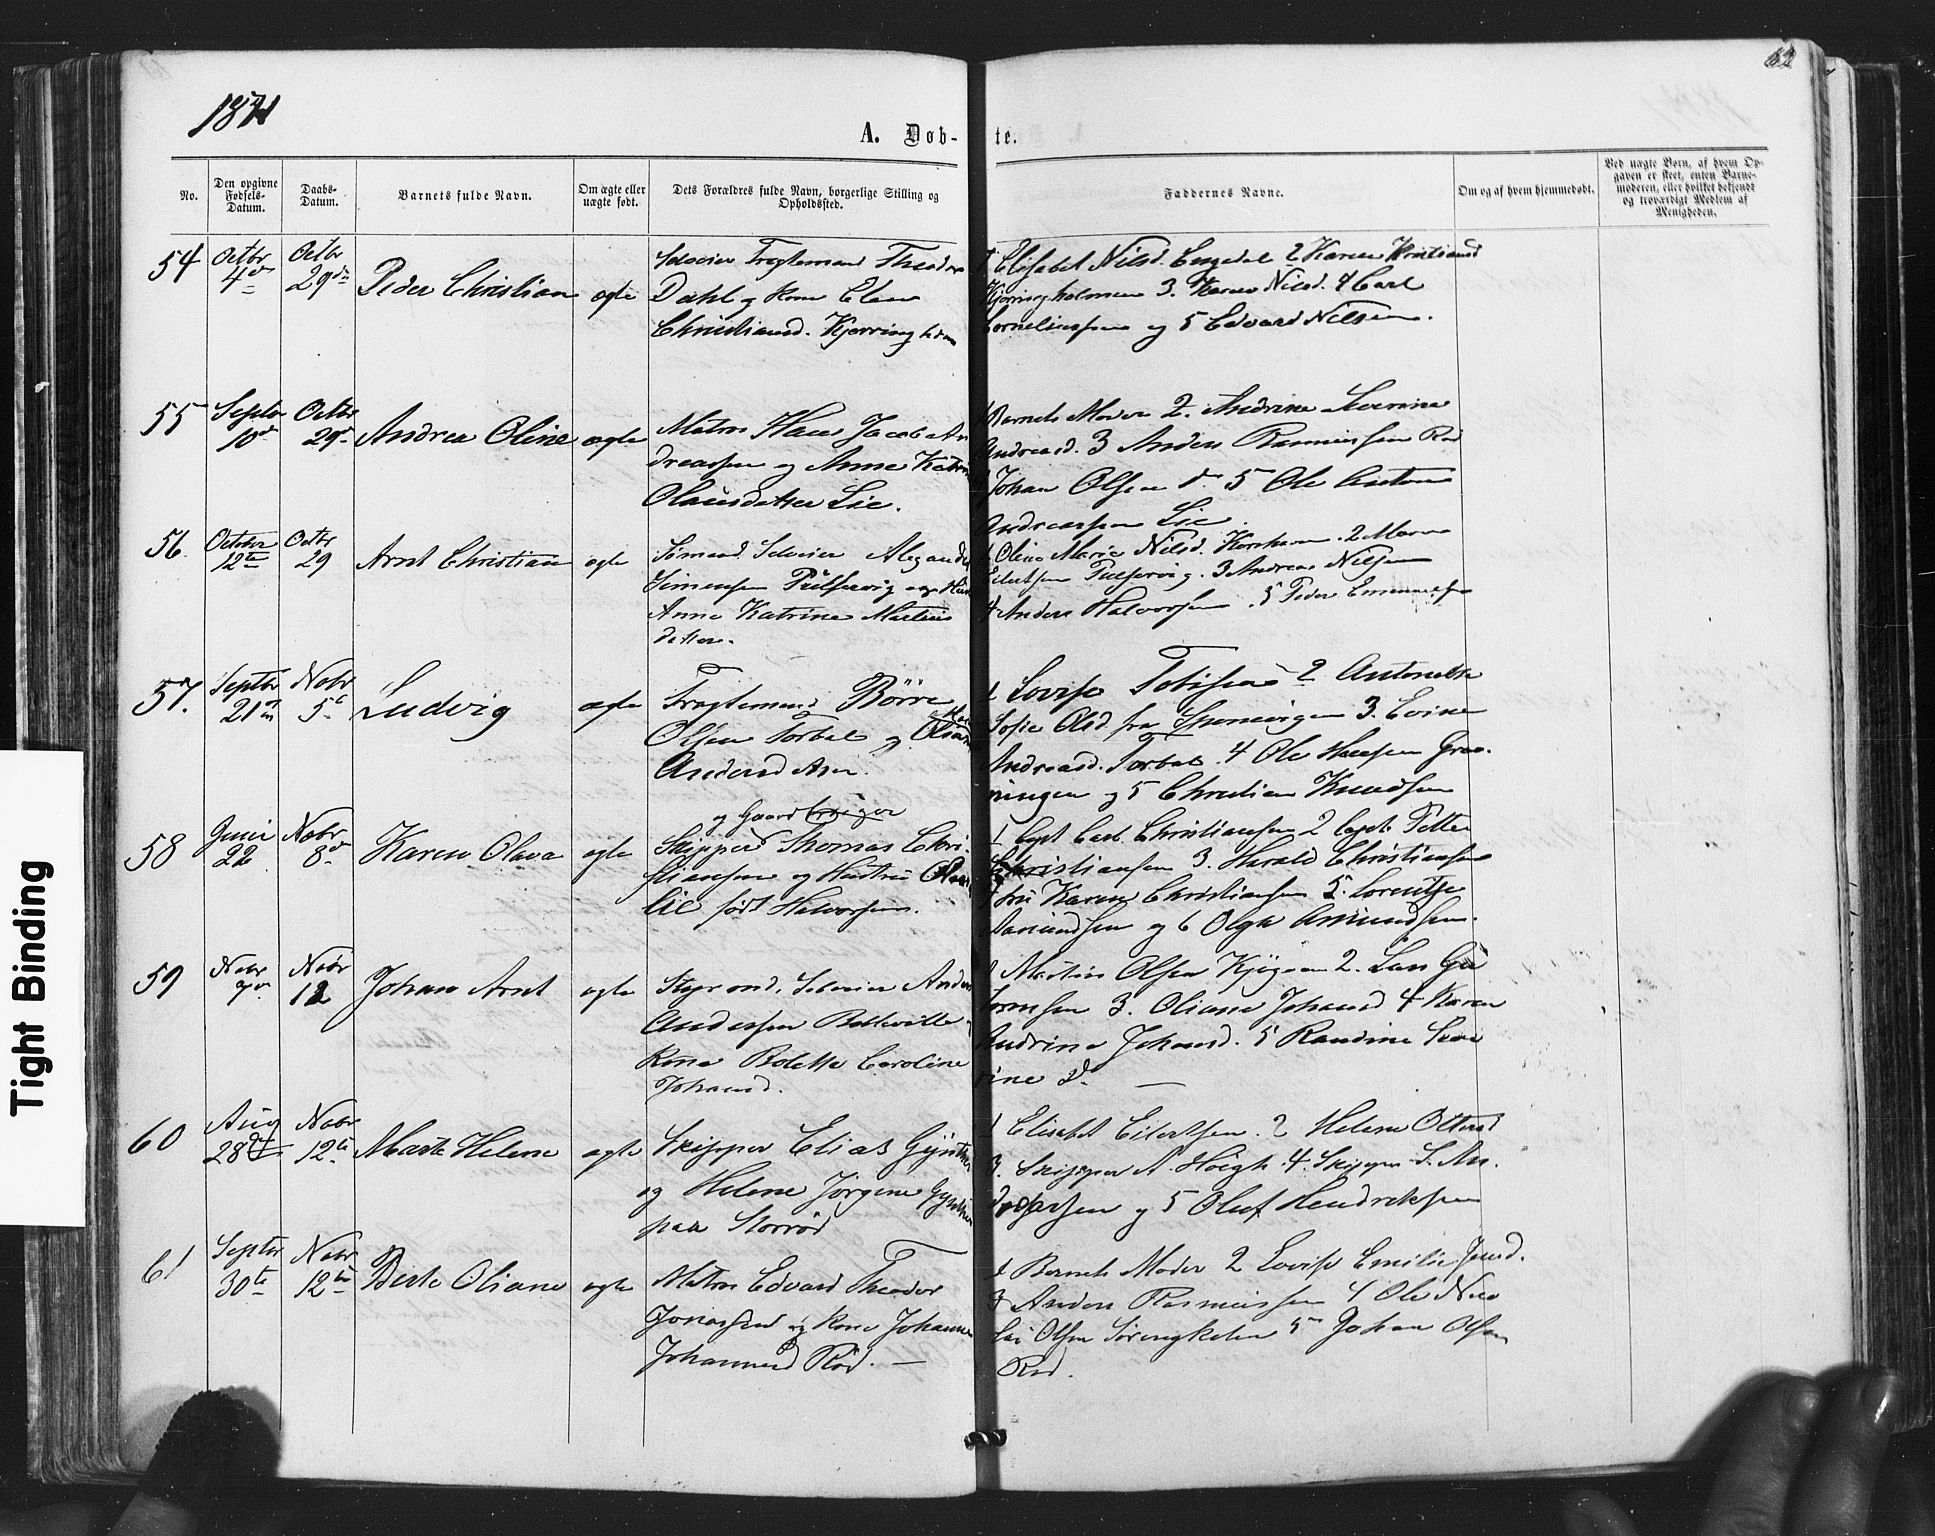 62
1871
A. Døb-
te.
No.
Den opgivne Fødsels-Datum.
Daabs-Datum.
Barnets fulde Navn.
Om ægte eller uægte født.
Dets Forældres fulde Navn, borgerlige Stilling og Opholdssted.
Faddernes Navne.
Om og af hvem hjemmedøbt.
Ved uægte Børn, af hvem Op-
gaven er skeet, enten Barne-
moderen, eller hvilket bekjendt
og troværdigt Medlem af
Menigheden.
54 Octbr 4de Octbr 29de Peder Christian ægte
Selveier Fragtemand Theodor
Dahl og Kone Elen
Christiansd. Kjerringholmen
1 Elisabet Nilsd. Engedal 2 Karen Kristiansd
Kjerringholmen 3. Karen Nilsd. 4 Carl
Corneliussen og 5 Edvard Nilsen.
55 Septbr 10de Octbr 29de Andrea Oline ægte
Matros Hans Jacob An
dreassen og Anne Katrine
Olausdatter Lie.
1 Barnets Moder 2. Andrine Severine
Andreasd. 3 Anders Rasmussen Rød
4 Johan Olsen do 5 Ole Anton
Andreassen Lie
56. October 12te Octbr 29 Arnt Christian ægte
Sømand. Selveier Alexander
Simensen Pulservig og Hustru
Anne Katrine Martins
datter.
1 Oline Marie Nilsd. 2 Maren
Eilertsen Pulservig. 3 Andreas Nilsen
4 Anders Halvorsen. 5 Peder
57. Septbr 21de Nobr 5te Ludvig ægte
Fragtemand Børre
Olsen Torbal og
Andersdatter.
1 Lovise Tobisen 2 Antonette
Sofie Olsd. fra 3. Evine
Andreasd. Torbal. 4 Ole Hansen Grøn-
ningen og 5 Christian Knudsen
58 Juni 22 Nobr 8de Karen Olava ægte
og Gaardbruger
Skipper Thomas Chri-
stiansen og Hustru
Lie født Halvorsen.
1 Capt Carl Christiansen 2 Capt. Petter
Christiansen 3. Harald Christiansen
4 Fru Karen Christiansen 5. Lorentse
Amundsen og 6 Olga Amundsen.
59 Nobr Nobr 12 Johan Arnt ægte
Styrmand. Selveier Anders
Andersen
Kone Bolette Caroline
Johansd.
1 Martin Olsen 2. Lars Gu
lormsen 3. Oliane Johansd 4 Karen
Andrine Johansd. 5 Randine Seve
rine do —
60 Aug 28de Nobr 12te Marte Helene ægte
Skipper Elias Gjyntner
og Helene Jørgine Gjyntner
paa Storrød
1 Elisabet Eilertsen. 2 Helene Ottersd
3. Skipper A. Høigh. 4. Skipper S. An-
dreassen og 5 Oluf Hendriksen
61 Septbr 30te Nobr 12te Berte Oliane ægte
Matros Edvard Theodor
Jonassen og Kone Johanne
Johannesd Rød. —
1 Barnets Moder 2 Lovise Emilie Jensd.
3 Anders Rasmussen 4 Ole Nico
lai Olsen Sørengkelen 5 Johan Olsen
Rød.
Tight Binding